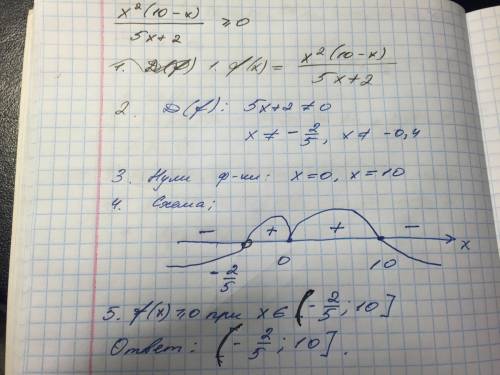 x²(10-x)/(5x+2) ≥0
1. f(x) = x²(10-x)/(5x+2)
2. D(f): 5x+2 ≠0
x ≠ -2/5, x ≠ -0,4
3. Нули ф-ки: x=0, x=10
4. Схема;
- + + -
-2/5 0 10 x
5. f(x) ≥0 при x∈(-2/5; 10]
Ответ: (-2/5; 10].